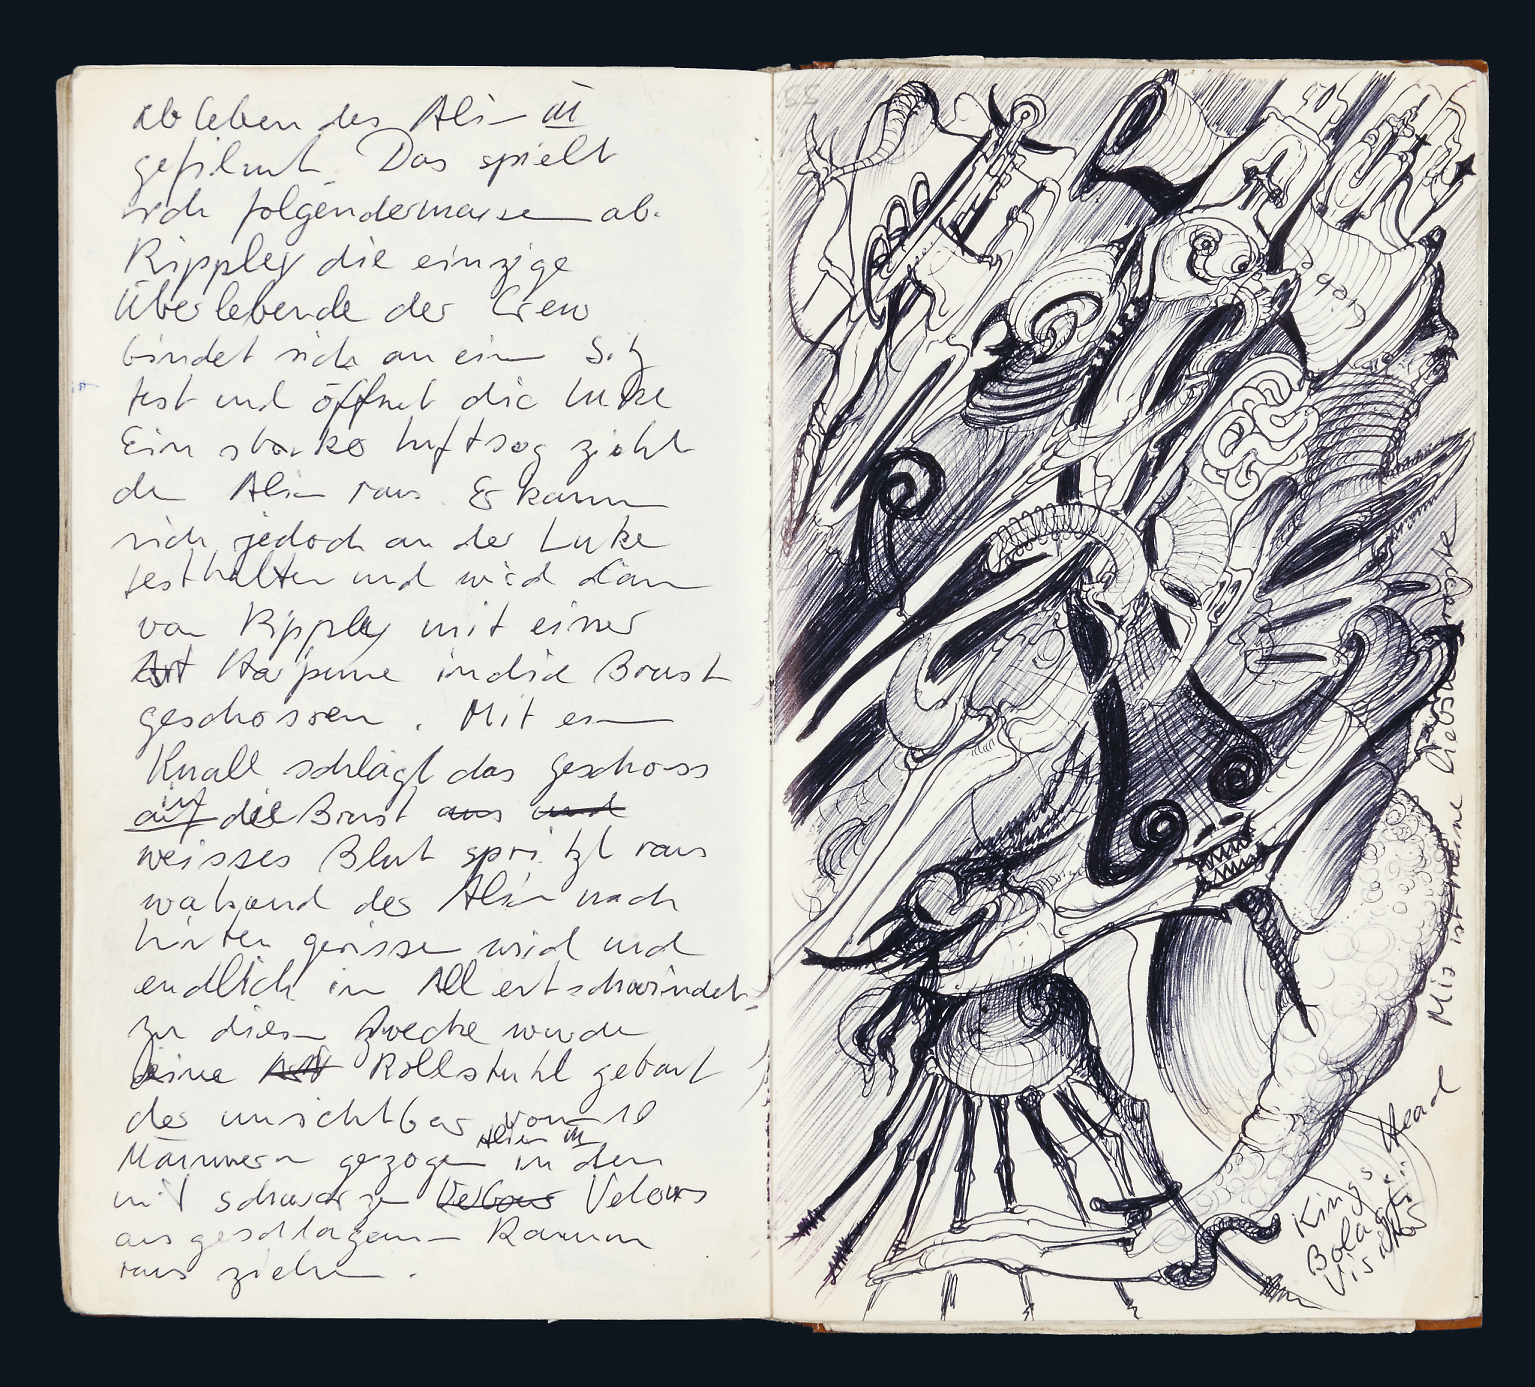 ableben des Alien III
gefilmt. Das spielt
sich folgendermassen ab.
Rippley die einzige
Überlebende der Crew
bindet sich an einen Sitz
fest und öffnet die Luke
Ein starker Luftsog zieht
den Alien raus. Er kann
sich jedoch an der Luke
festhalten und wird dann
von Rippley mit einer
Art Harpune in die Brust
geschossen. Mit einem
Knall schlägt das geschoss
auf in die Brust aus und
weisses Blut spritzt raus
während des Alien nach
hinten gerissen wird und
endlich im All entschwindet.
Zu diesem Zwecke wurde
eine Art Rollstuhl gebaut
der unsichtbar von 10
Männern gezogen Alien III in den
mit schwarzen Velours
ausgeschlagenen Raum
raus ziehen.
Liebe
Mir ist graune liebste
Kings Head
Bolag